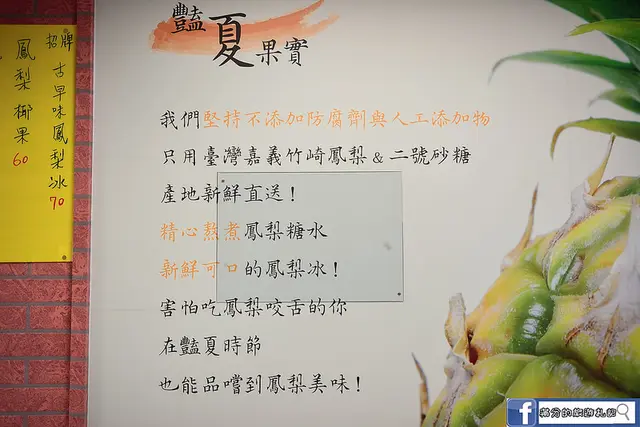 豔夏果實
我們堅持不添加防腐劑與人工添加物
只用臺灣嘉義竹崎鳳梨&二號砂糖
產地新鮮直送!
精心熬煮鳳梨糖水
新鮮可口的鳳梨冰!
害怕吃鳳梨咬舌的你
在豔夏時節
也能品嚐到鳳梨美味!
招牌古早味鳳梨冰 70
鳳梨椰果 60
滿分的旅遊札記